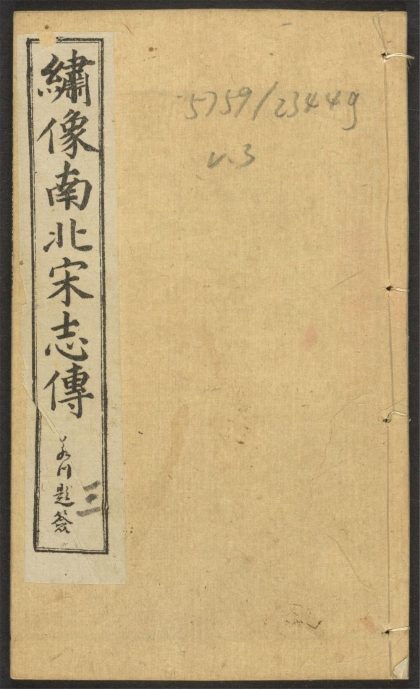 繡像南北宋志傳
題簽
三
5759/23449
v.3